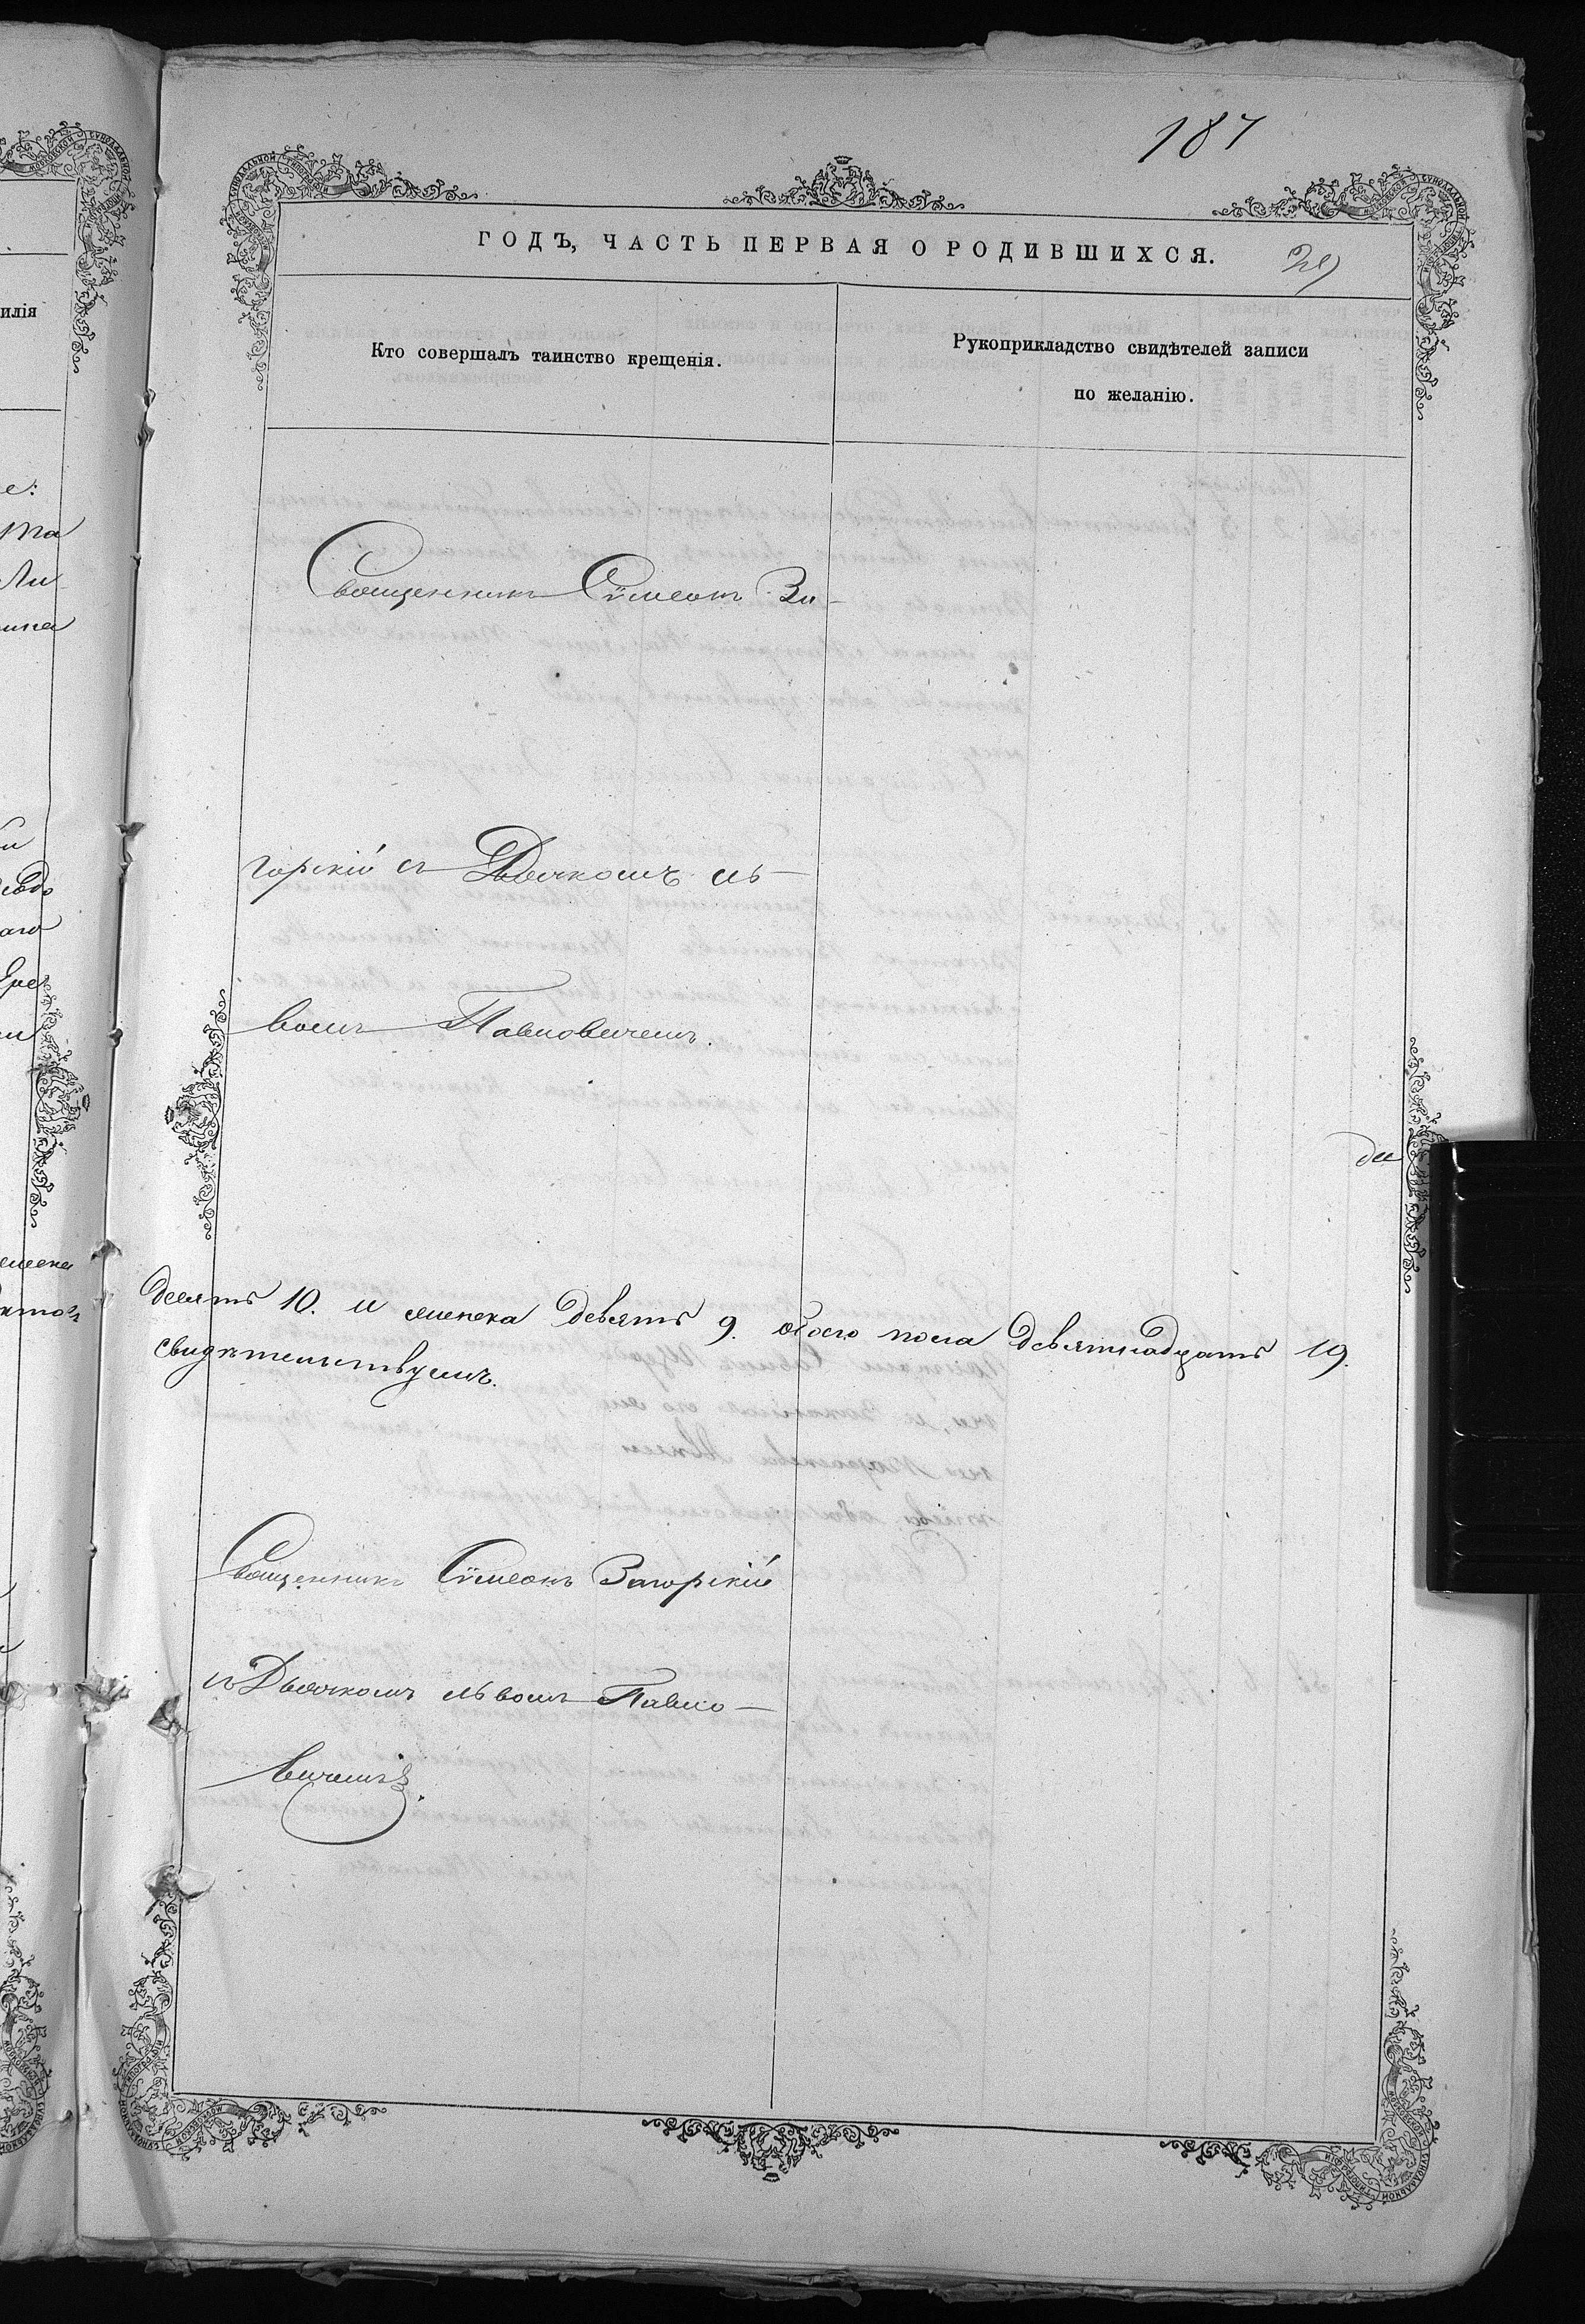 187
ГОДЪ, ЧАСТЬ ПЕРВАЯ О РОДИВШИХСЯ.
Кто совершалъ таинство крещенія.
Рукоприкладство свидѣтелей записи
по желанію.
Священникъ Сѵмеонъ За-
горскій съ Дьячкомъ Ль-
вомъ Павловичемъ.
десять 10. и женска девять 9. обоего пола девятнадцать 19.
свидѣтельствуемъ.
Священникъ Сѵмеонъ Загорскій
съ Дьячкомъ Львомъ Павло-
вичемъ.